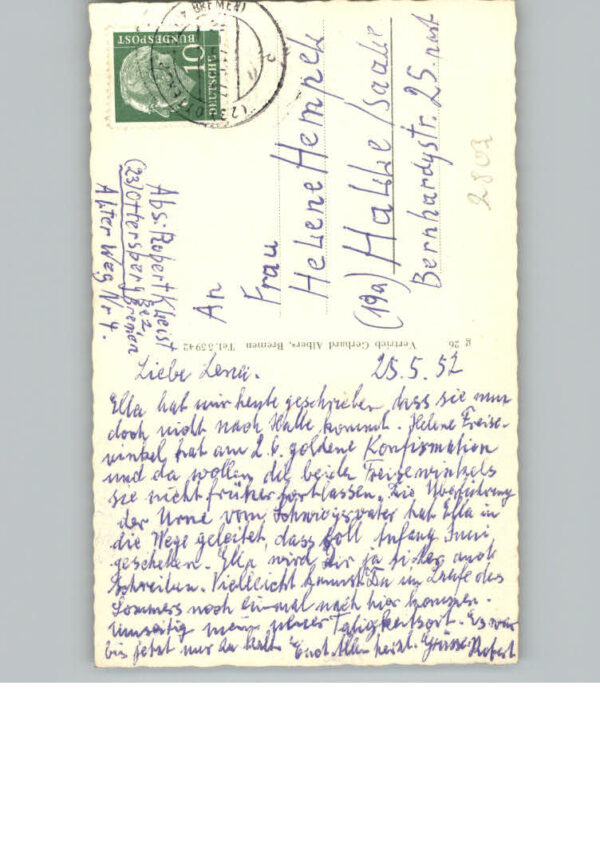 DEUTSCHE
BUNDESPOST
10
BREMEN)
(23) OTTERSBERG
Abs: Robert Kleist
(23) Ottersberg Bez. Bremen
Alter Weg Nr 4.
An
Frau
Helene Hempel
(19a) Halle/Saale
Bernhardystr. 25. part
2802
g 26 Vertrieb Gerhard Albers, Bremen Tel. 55942
Liebe Lena. 25.5.57
Ella hat mir heute geschrieben, dass sie nun
doch nicht nach Halle kommt. Helene Freise-
winkel hat am 2.6. goldene Konfirmation
und da wollen die beiden Freisewinkels
sie nicht früher fortlassen. Die Überführung
der Urne vom Schwiegervater hat Ella in
die Wege geleitet, dass soll Anfang Juni
geschehen. Ella wird Dir ja sicher auch
schreiben. Vielleicht kannst Du im Laufe des
Sommers noch einmal nach hier kommen.
Umseitig mein neuer Tätigkeitsort. Es war
bis jetzt nur zu kalt. Euch Allen herzl. Grüsse Robert